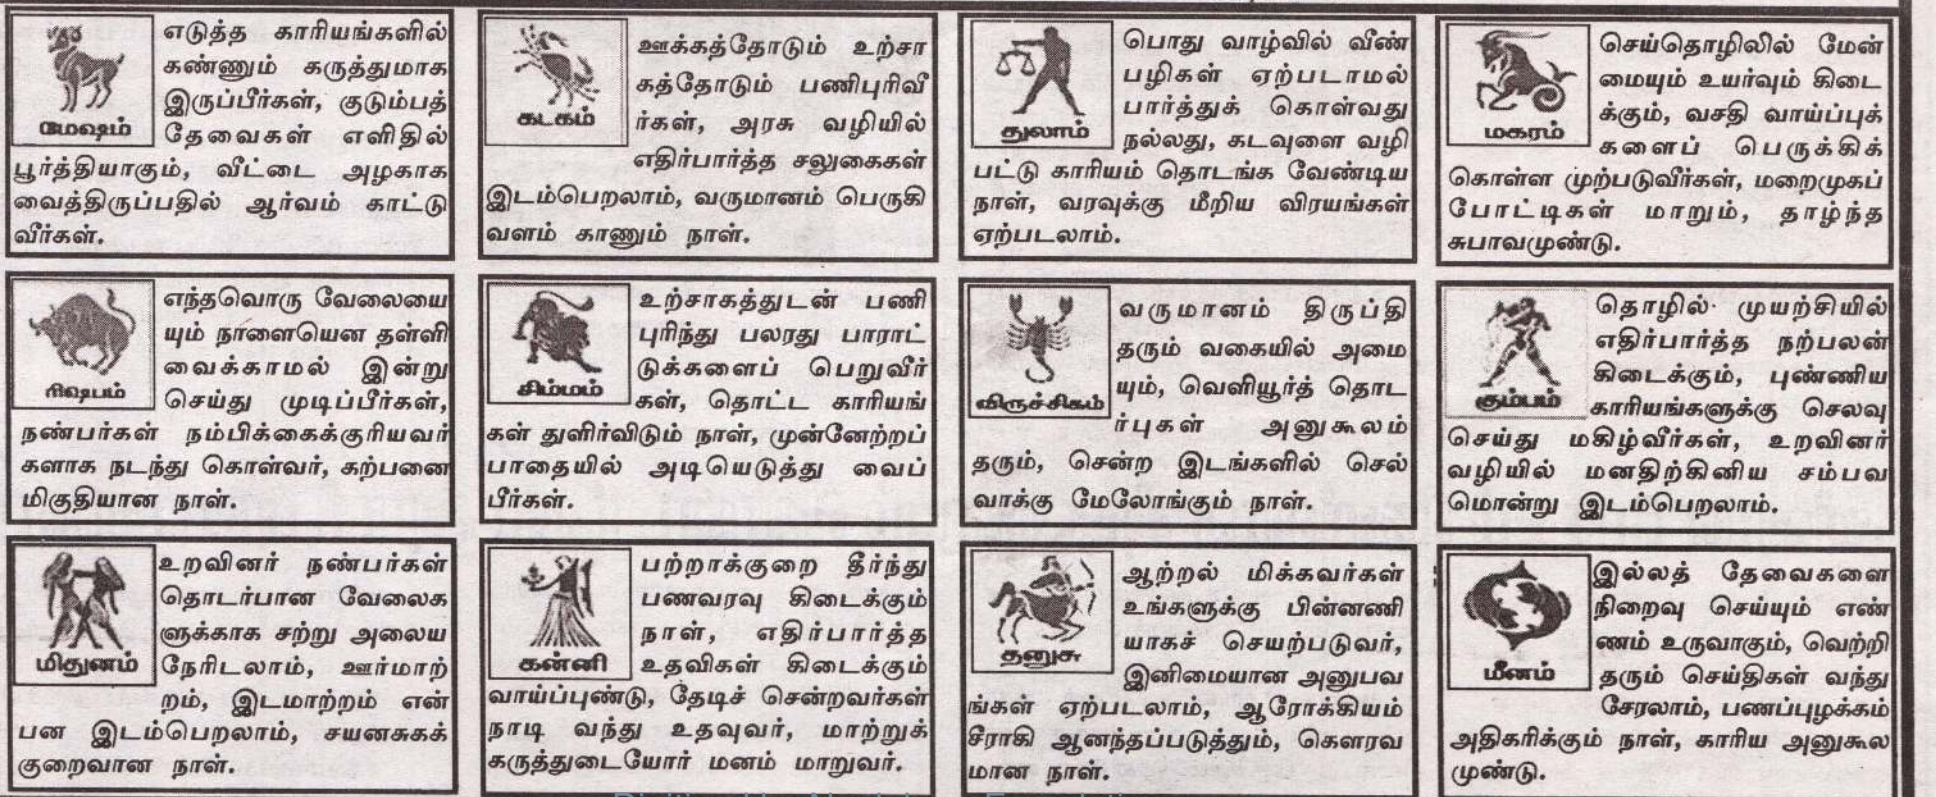 எடுத்த காரியங்களில்
கண்ணும் கருத்துமாக
இருப்பீர்கள், குடும்பத்
தேவைகள் எளிதில்
மேஷம்
பூர்த்தியாகும், வீட்டை அழகாக
வைத்திருப்பதில் ஆர்வம் காட்டு
வீர்கள்.
எந்தவொரு வேலையை
யும் நாளையென தள்ளி
வைக்காமல் இன்று
செய்து முடிப்பீர்கள்,
ரிஷபம்
நண்பர்கள் நம்பிக்கைக்குரியவர்
களாக நடந்து கொள்வர், கற்பனை
மிகுதியான நாள்.
உறவினர் நண்பர்கள்
தொடர்பான வேலைக
ளுக்காக சற்று அலைய
நேரிடலாம், ஊர்மாற்
மிதுனம்
றம், இடமாற்றம் என்
பன இடம்பெறலாம், சயனசுகக்
குறைவான நாள்.
ஊக்கத்தோடும் உற்சா
கத்தோடும் பணிபுரிவீ
ர்கள், அரசு வழியில்
கடகம்
எதிர்பார்த்த சலுகைகள்
இடம்பெறலாம், வருமானம் பெருகி
வளம் காணும் நாள்.
உற்சாகத்துடன் பணி
புரிந்து பலரது பாராட்
டுக்களைப் பெறுவீர்
சிம்மம்
கள், தொட்ட காரியங்
கள் துளிர்விடும் நாள், முன்னேற்றப்
பாதையில் அடியெடுத்து வைப்
பீர்கள்.
பற்றாக்குறை தீர்ந்து
பணவரவு கிடைக்கும்
நாள், எதிர்பார்த்த
உதவிகள் கிடைக்கும்
கன்னி
வாய்ப்புண்டு, தேடிச் சென்றவர்கள்
நாடி வந்து உதவுவர், மாற்றுக்
கருத்துடையோர் மனம் மாறுவர்.
பொது வாழ்வில் வீண்
பழிகள் ஏற்படாமல்
பார்த்துக் கொள்வது
துலாம்
நல்லது, கடவுளை வழி
பட்டு காரியம் தொடங்க வேண்டிய
நாள், வரவுக்கு மீறிய விரயங்கள்
ஏற்படலாம்.
வருமானம் திருப்தி
தரும் வகையில் அமை
யும், வெளியூர்த் தொட
விருச்சிகம்
ர்புகள் அனுகூலம்
தரும், சென்ற இடங்களில் செல்
வாக்கு மேலோங்கும் நாள்.
ஆற்றல் மிக்கவர்கள்
உங்களுக்கு பின்னணி
யாகச் செயற்படுவர்,
தனுசு
இனிமையான அனுபவ
ங்கள் ஏற்படலாம், ஆரோக்கியம்
சீராகி ஆனந்தப்படுத்தும், கௌரவ
மான நாள்.
செய்தொழிலில் மேன்
மையும் உயர்வும் கிடை
க்கும், வசதி வாய்ப்புக்
மகரம்
களைப் பெருக்கிக்
கொள்ள முற்படுவீர்கள், மறைமுகப்
போட்டிகள் மாறும், தாழ்ந்த
சுபாவமுண்டு.
தொழில் முயற்சியில்
எதிர்பார்த்த நற்பலன்
கிடைக்கும், புண்ணிய
காரியங்களுக்கு செலவு
கும்பம்
செய்து மகிழ்வீர்கள், உறவினர்
வழியில் மனதிற்கினிய சம்பவ
மொன்று இடம்பெறலாம்.
இல்லத் தேவைகளை
நிறைவு செய்யும் எண்
ணம் உருவாகும், வெற்றி
தரும் செய்திகள் வந்து
மீனம்
சேரலாம், பணப்புழக்கம்
அதிகரிக்கும் நாள், காரிய அனுகூல
முண்டு.